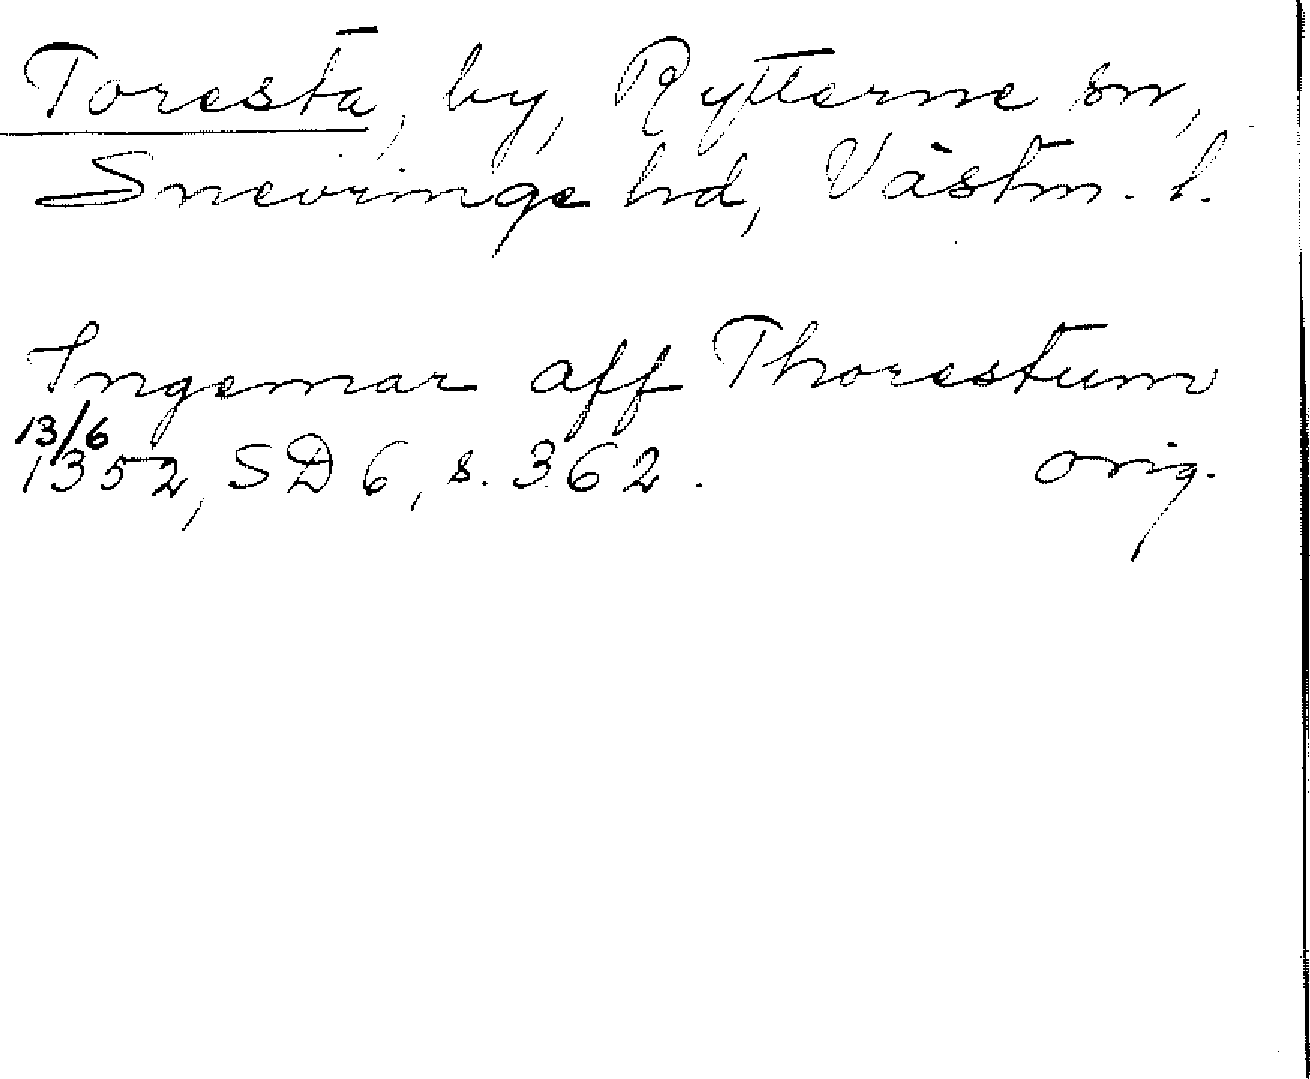 Toresta, by, Rytterne sn,
Snevringe hd, Västm. l.
Ingemar aff Thorestum
13/6
1352, SD 6, s. 362. orig.